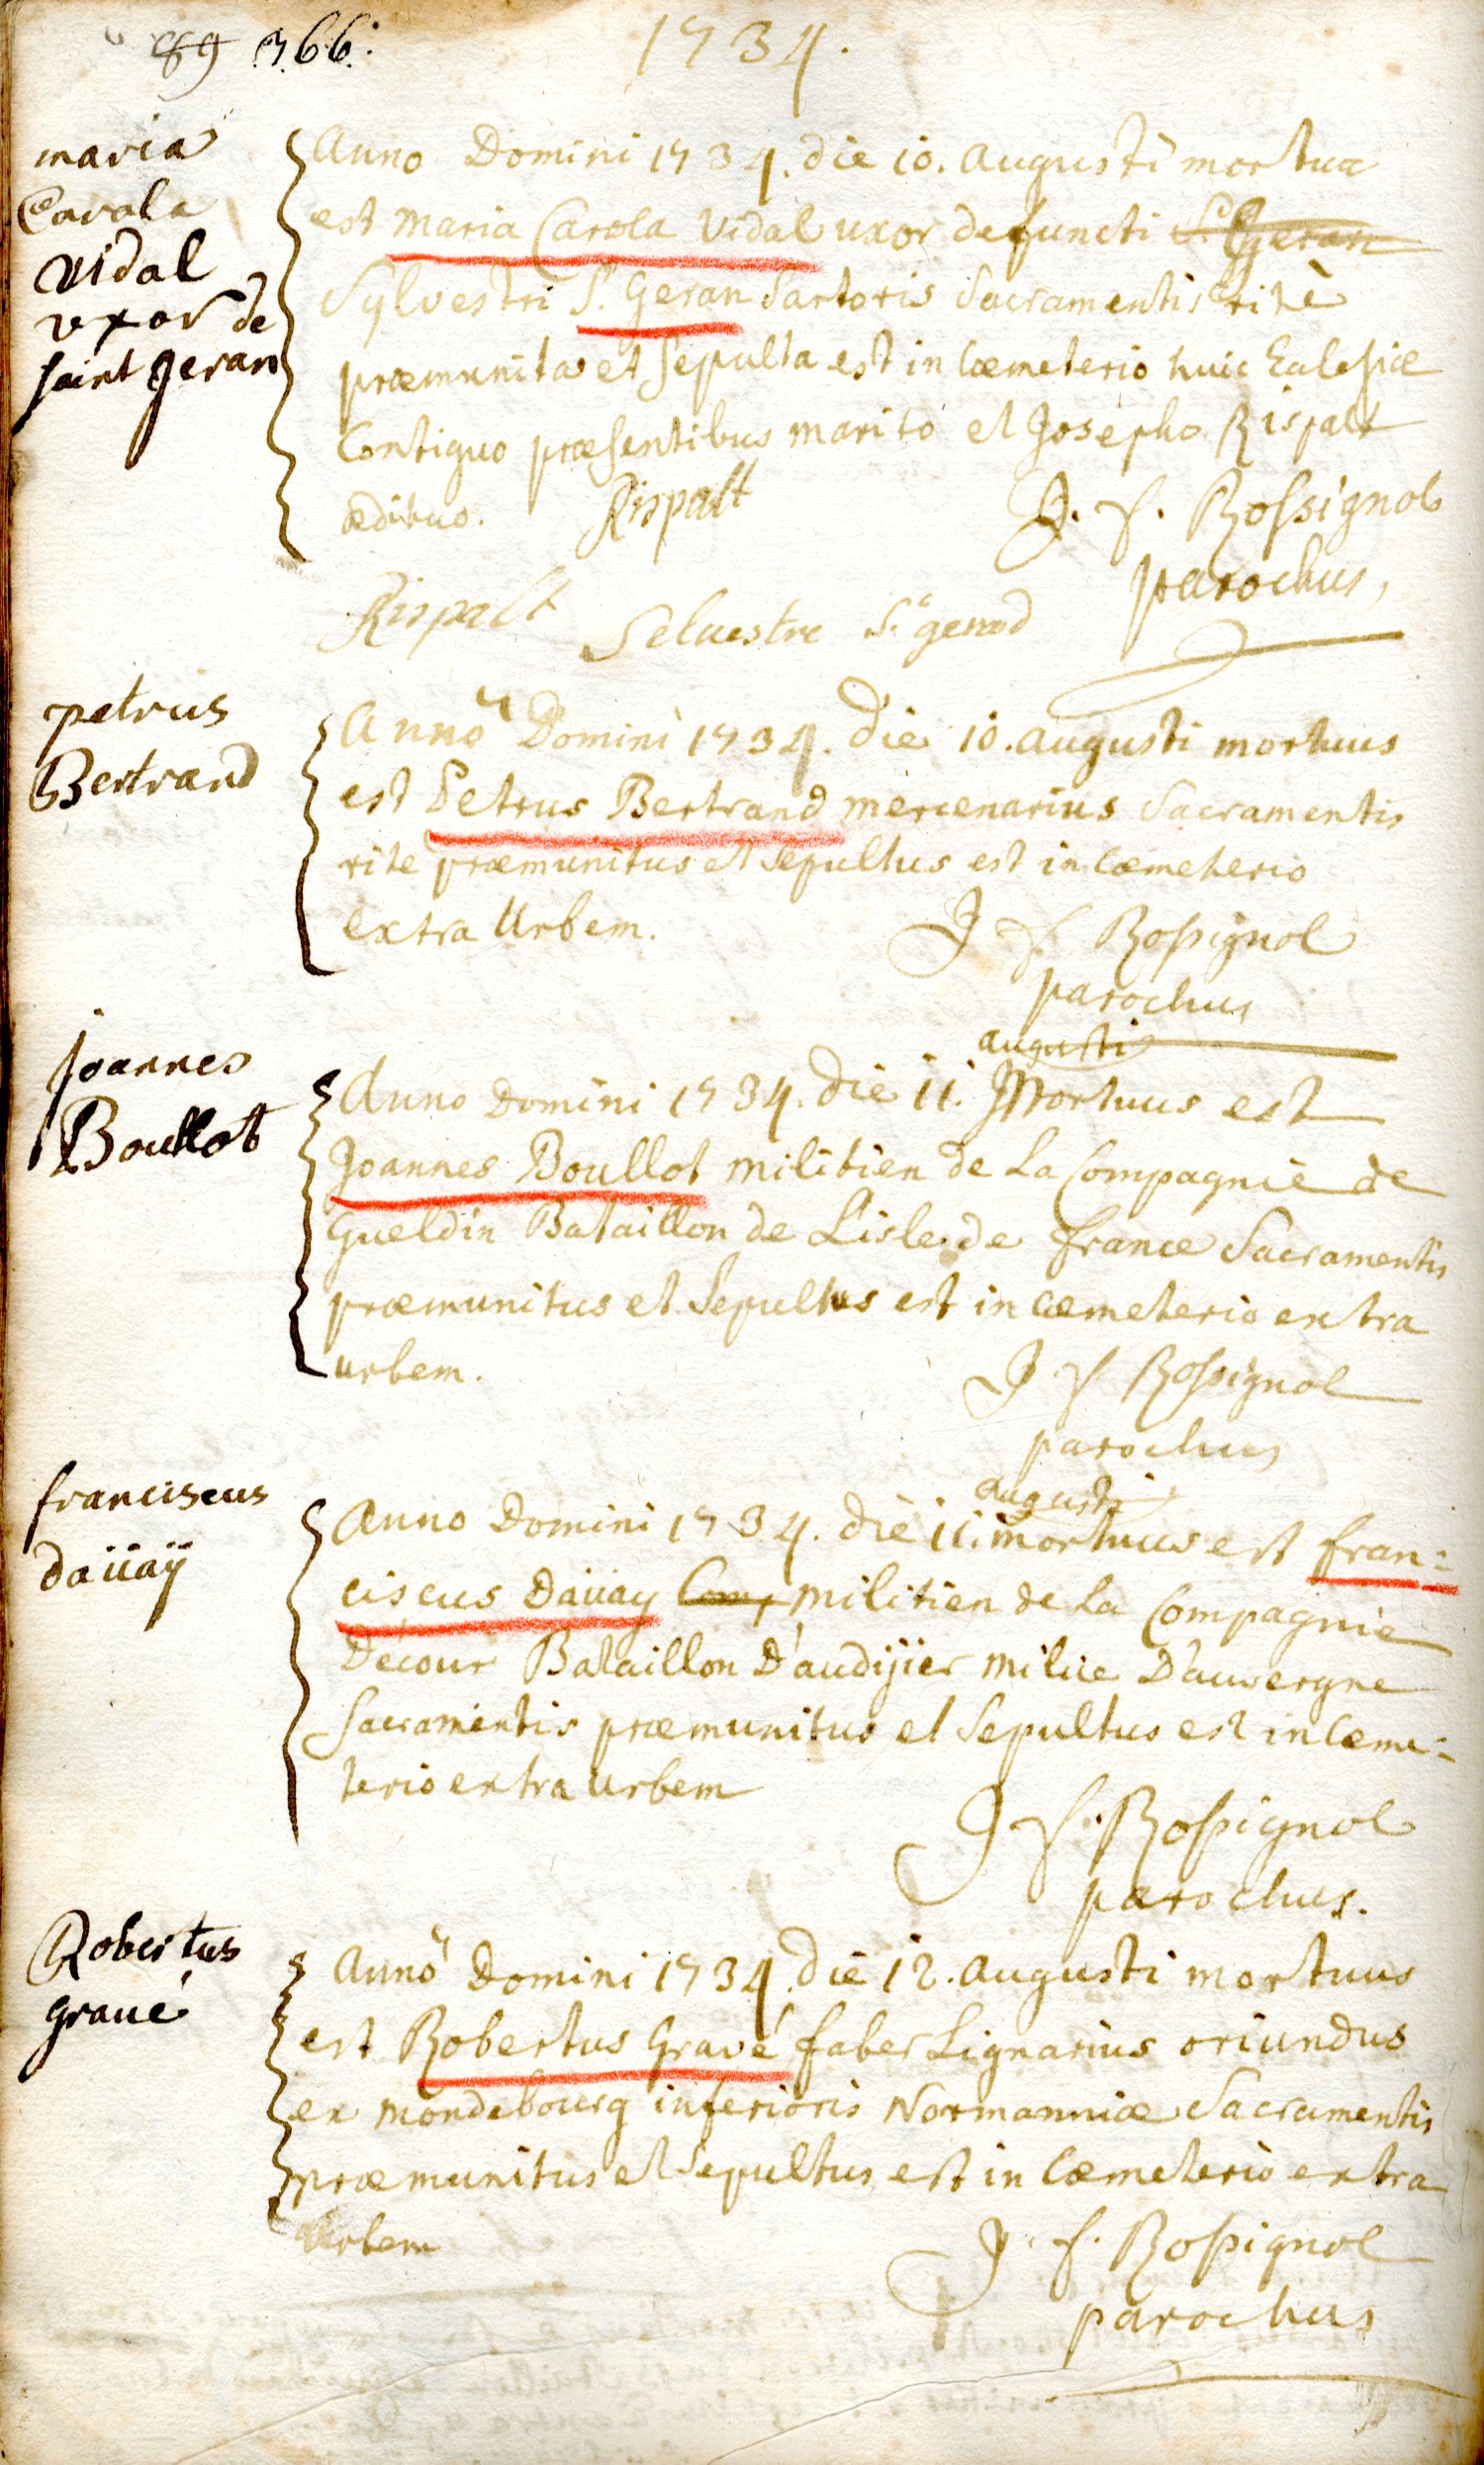 89 366.
1734.
maria
Carola
vidal
uxor de
saint geran
Anno Domini 1734. die 10. augusti mortua
est Maria Carola Vidal uxor defuncti S.t Geran
Sylvestri S.t Geran Sartoris Sacramentis ritè
præmunita et Sepulta est in Cœmeterio huic Eclesiæ
Contiguo præsentibus marito et Josepho Rispalt
ædituo. Rispalt J. f. Rossignol
parochus,
Rispalt Seluestre S.t gerand
petrus
Bertrand
Anno Domini 1734. die 10. augusti mortuus
est Petrus Bertrand mercenarius Sacramentis
rite præmunitus et Sepultus est in Cœmeterio
extra Urbem. J f Rossignol
parochus
joannes
Boullot
augusti
Anno Domini 1734. die 11. Mortuus est
Joannes Boullot militien de La Compagnie de
Gueldin Bataillon de L'isle de france Sacramentis
præmunitus et Sepultus est in Cœmeterio extra
urbem. J f Rossignol
parochus
franciscus
daüaÿ
augusti
Anno Domini 1734. die 11. mortuus est fran=
ciscus Daüay Comp militien de La Compagnie
Décour Bataillon D'audijier milice D'auvergne
Sacramentis præmunitus et Sepultus est in Cœme=
terio extra Urbem
J f. Rossignol
parochus.
Robertus
graué
Anno Domini 1734. die 12. augusti mortuus
est Robertus Gravé faber Lignarius oriundus
ex mondebourg inferioris Normanniæ Sacramentis
præmunitus et Sepultus est in Cœmeterio extra
Urbem J. f. Rossignol
parochus